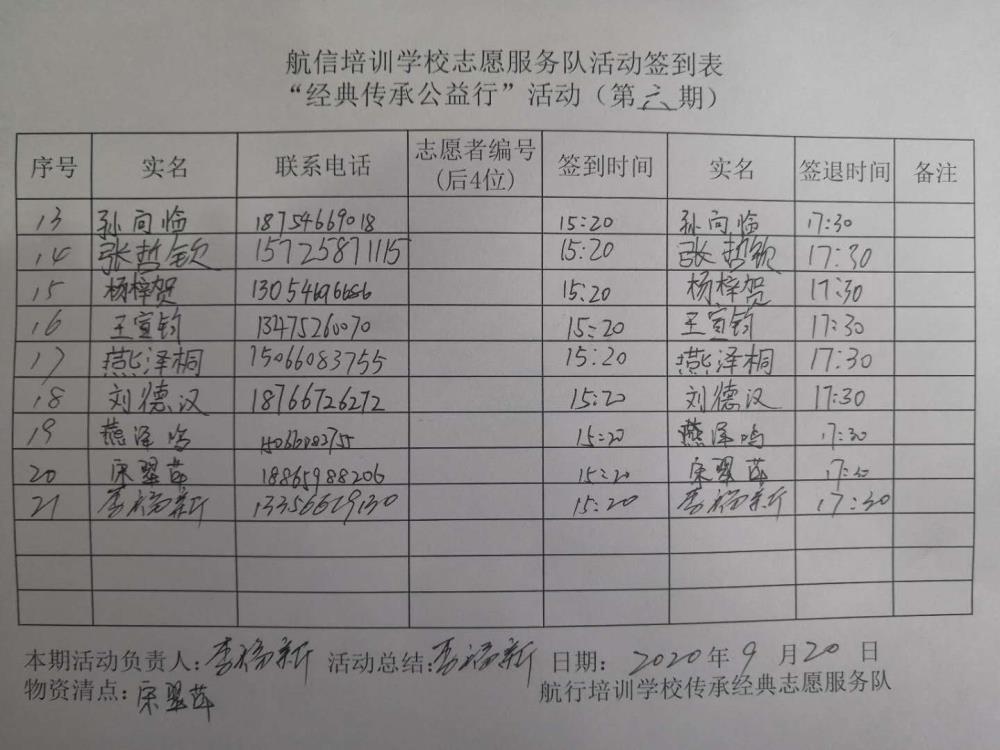 航信培训学校志愿服务队活动签到表
“经典传承公益行”活动（第六期）
序号 实名 联系电话 志愿者编号(后4位) 签到时间 实名 签退时间 备注
13 孙向临 18754669018 15:20 孙向临 17:30
14 张哲钦 15725871115 15:20 张哲钦 17:30
15 杨梓贺 15:20 杨梓贺 17:30
16 王宣钧 13475260070 15:20 王宣钧 17:30
17 燕泽桐 15066083755 15:20 燕泽桐 17:30
18 刘德汉 18766726272 15:20 刘德汉 17:30
19 燕泽鸣 15066083755 15:20 燕泽鸣 17:30
20 宋翠萍 18865988206 15:20 宋翠萍 17:30
21 李杨新 13356629130 15:20 李杨新 17:30
本期活动负责人:李杨新 活动总结:李杨新 日期: 2020年9月20日
物资清点:宋翠萍 航行培训学校传承经典志愿服务队